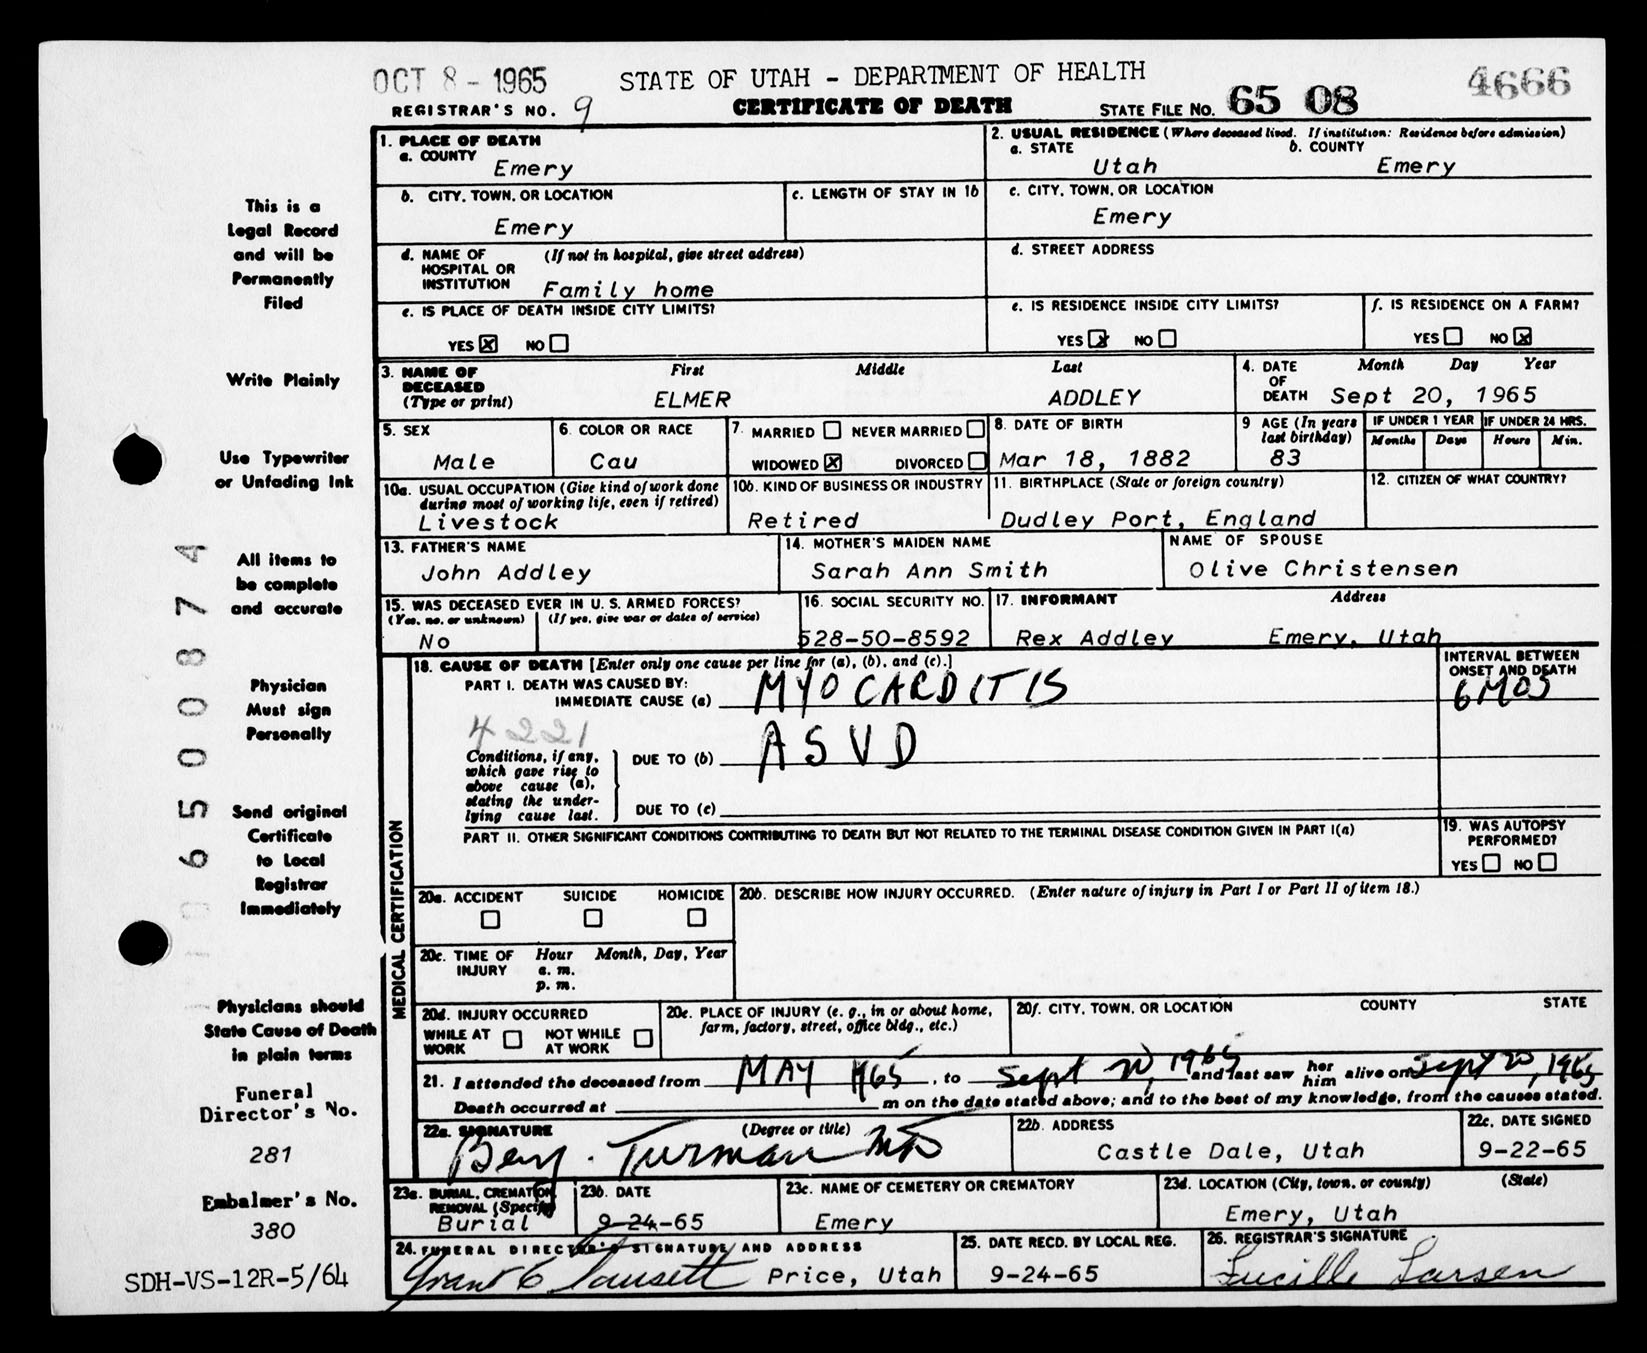 OCT 8 - 1965 STATE OF UTAH - DEPARTMENT OF HEALTH 4666
REGISTRAR'S NO. 9 CERTIFICATE OF DEATH STATE FILE NO. 65 08
1. PLACE OF DEATH
a. COUNTY
Emery
2. USUAL RESIDENCE (Where deceased lived. If institution: Residence before admission)
a. STATE b. COUNTY
Utah Emery
b. CITY, TOWN, OR LOCATION
Emery
c. LENGTH OF STAY IN 1b
c. CITY, TOWN, OR LOCATION
Emery
d. NAME OF HOSPITAL OR INSTITUTION (If not in hospital, give street address)
Family home
d. STREET ADDRESS
e. IS PLACE OF DEATH INSIDE CITY LIMITS?
YES [X] NO [ ]
e. IS RESIDENCE INSIDE CITY LIMITS?
YES [X] NO [ ]
f. IS RESIDENCE ON A FARM?
YES [ ] NO [X]
3. NAME OF DECEASED (Type or print) First Middle Last
ELMER ADDLEY
4. DATE OF DEATH Month Day Year
Sept 20, 1965
5. SEX
Male
6. COLOR OR RACE
Cau
7. MARRIED [ ] NEVER MARRIED [ ]
WIDOWED [X] DIVORCED [ ]
8. DATE OF BIRTH
Mar 18, 1882
9 AGE (In years last birthday)
83
IF UNDER 1 YEAR IF UNDER 24 HRS.
Months Days Hours Min.
10a. USUAL OCCUPATION (Give kind of work done during most of working life, even if retired)
Livestock
10b. KIND OF BUSINESS OR INDUSTRY
Retired
11. BIRTHPLACE (State or foreign country)
Dudley Port, England
12. CITIZEN OF WHAT COUNTRY?
13. FATHER'S NAME
John Addley
14. MOTHER'S MAIDEN NAME
Sarah Ann Smith
NAME OF SPOUSE
Olive Christensen
15. WAS DECEASED EVER IN U. S. ARMED FORCES?
(Yes, no, or unknown) (If yes, give war or dates of service)
No
16. SOCIAL SECURITY NO.
528-50-8592
17. INFORMANT Address
Rex Addley Emery, Utah
MEDICAL CERTIFICATION
18. CAUSE OF DEATH [Enter only one cause per line for (a), (b), and (c).]
PART I. DEATH WAS CAUSED BY:
IMMEDIATE CAUSE (a) MYOCARDITIS
INTERVAL BETWEEN ONSET AND DEATH
6 MOS
4221
Conditions, if any, which gave rise to above cause (a), stating the underlying cause last.
DUE TO (b) ASVD
DUE TO (c)
PART II. OTHER SIGNIFICANT CONDITIONS CONTRIBUTING TO DEATH BUT NOT RELATED TO THE TERMINAL DISEASE CONDITION GIVEN IN PART I(a)
19. WAS AUTOPSY PERFORMED?
YES [ ] NO [ ]
20a. ACCIDENT SUICIDE HOMICIDE
20b. DESCRIBE HOW INJURY OCCURRED. (Enter nature of injury in Part I or Part II of item 18.)
20c. TIME OF INJURY Hour Month, Day, Year
a. m.
p. m.
20d. INJURY OCCURRED
WHILE AT WORK [ ] NOT WHILE AT WORK [ ]
20e. PLACE OF INJURY (e. g., in or about home, farm, factory, street, office bldg., etc.)
20f. CITY, TOWN, OR LOCATION COUNTY STATE
21. I attended the deceased from MAY 1965, to Sept 20, 1965 and last saw her him alive on Sept 20, 1965
Death occurred at m on the date stated above; and to the best of my knowledge, from the causes stated.
22a. SIGNATURE (Degree or title)
Benj. Turman MD
22b. ADDRESS
Castle Dale, Utah
22c. DATE SIGNED
9-22-65
23a. BURIAL, CREMATION, REMOVAL (Specify)
Burial
23b. DATE
9-24-65
23c. NAME OF CEMETERY OR CREMATORY
Emery
23d. LOCATION (City, town, or county) (State)
Emery, Utah
24. FUNERAL DIRECTOR'S SIGNATURE AND ADDRESS
Grant C Fausett Price, Utah
25. DATE RECD. BY LOCAL REG.
9-24-65
26. REGISTRAR'S SIGNATURE
Lucille Larsen
This is a
Legal Record
and will be
Permanently
Filed
Write Plainly
Use Typewriter
or Unfading Ink
All items to
be complete
and accurate
Physician
Must sign
Personally
Send original
Certificate
to Local
Registrar
Immediately
Physicians should
State Cause of Death
in plain terms
Funeral
Director's No.
281
Embalmer's No.
380
SDH-VS-12R-5/64